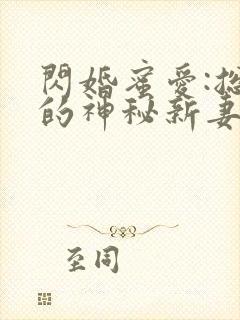 閃婚蜜愛:總
的神秘新妻
至同